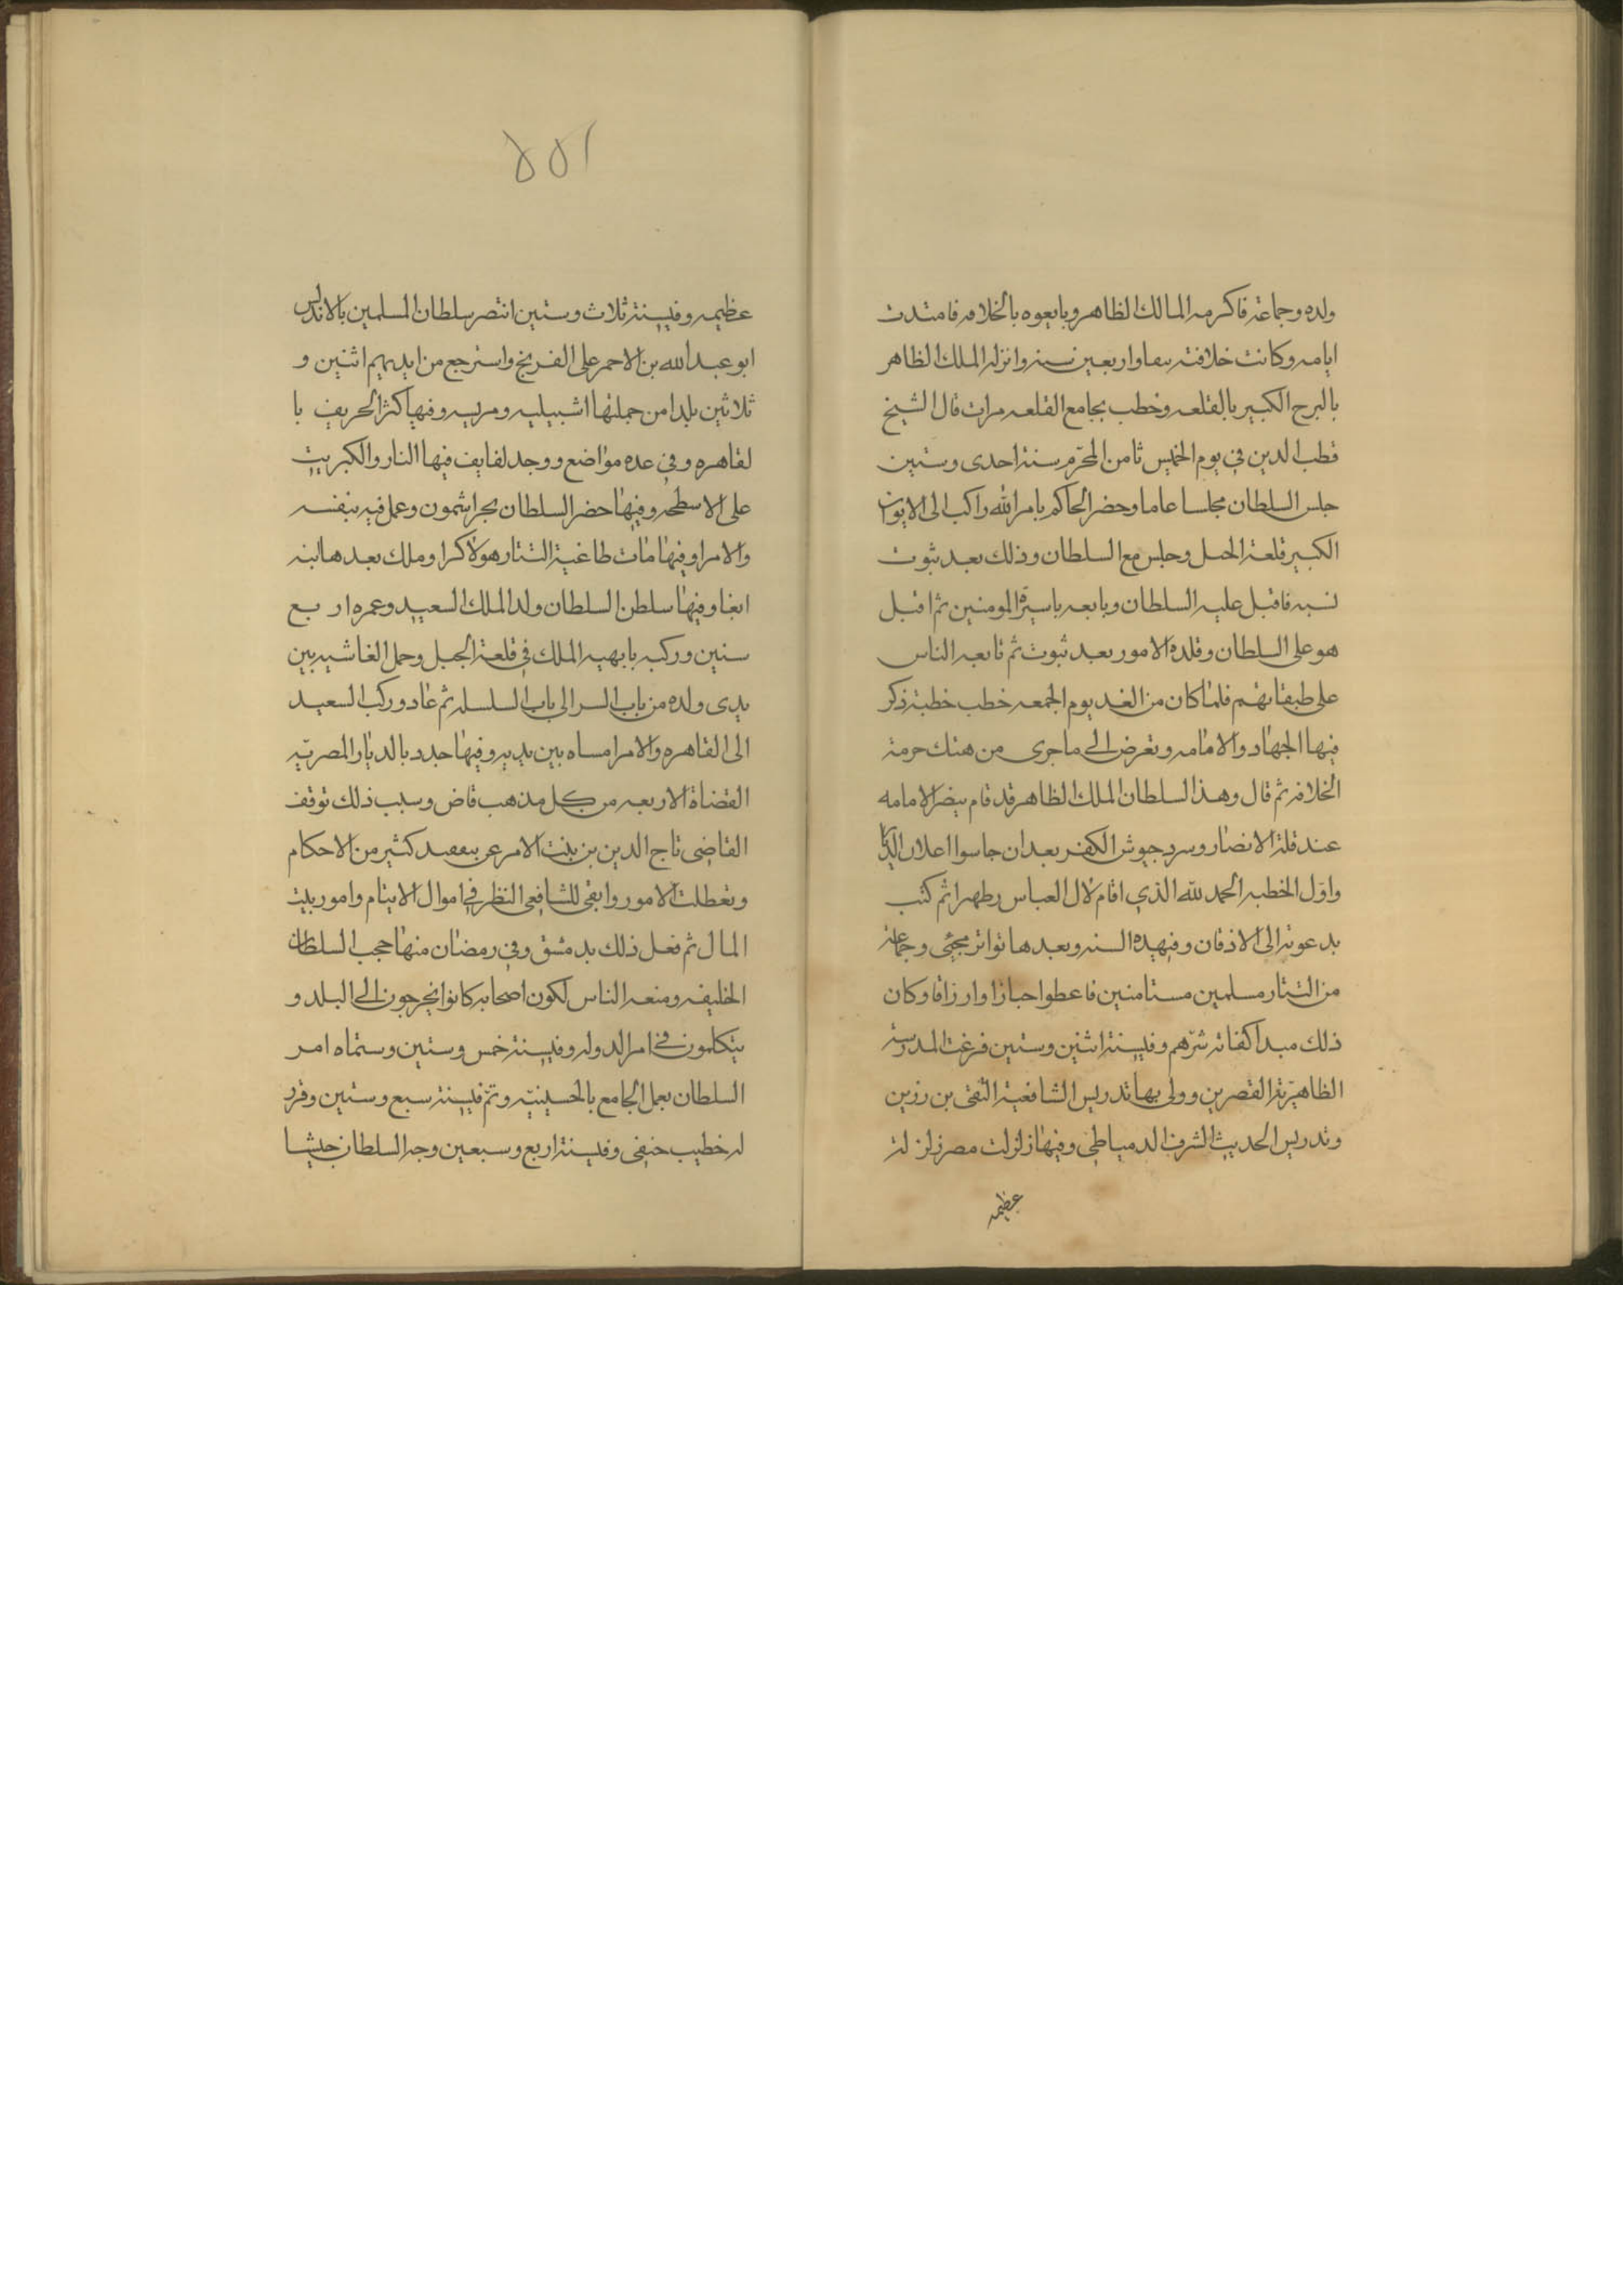 ولده وجماعته فاكرمه المالك الظاهر وبايعوه بالخلافه فامتدت
ايامه وكانت خلافته نيفا واربعين سنه وانزله الملك الظاهر
بالبرج الكبير بالقلعه وخطب بجامع القلعه مرات قال الشيخ
قطب الدين في يوم الخميس ثامن المحرم سنة احدى وستين
جلس السلطان مجلسا عاما وحضر الحاكم بامر الله راكب الى الايوان
الكبير قلعة الجبل وجلس مع السلطان وذلك بعد ثبوت
نسبه فاقبل عليه السلطان وبايعه المومنين ثم اقبل
هو على السلطان وقلده الامور بعد ثبوت ثم تابعه الناس
على طبقاتهم فلما كان من الغد يوم الجمعه خطب خطبة ذكر
فيها الجهاد والامامه وتعرض الى ما جرى من هتك حرمة
الخلافه ثم قال وهذا السلطان الملك الظاهر قد قام بنصر الامامه
عند قلة الانصار وسرد جيوش الكفر بعد ان جاسوا الديار
واول الخطبه الحمد لله الذي اقام لال العباس ثم كتب
بدعوته الى الافاق وفي هذه السنه وبعدها تواتر مجئ وجماعة
من التتار مسلمين مستامنين فاعطوا وارزاقا وكان
ذلك مبدا كفاته شرهم وفي سنة اثنين وستين فرغت المدرسة
الظاهرية القصرين وولي بها تدريس الشافعية التقي بن رزين
وتدريس الحديث الشرف الدمياطي وفيها زلزلت مصر زلزلة
عظيمه
١٥٥
عظيمه وفي سنة ثلاث وستين انتصر سلطان المسلمين بالاندلس
ابو عبد الله بن الاحمر على الفرنج واسترجع من ايديهم اثنين و
ثلاثين بلدا من جملتها اشبيليه ومرسيه وفيها كثر الحريق با
لقاهره وفي عده مواضع ووجد لفايف فيها النار والكبريت
على الاسطحه وفيها حضر السلطان بحر اشمون وعمل فيه بنفسه
والامرا وفيها مات طاغية التتار هولاكرا وملك بعدها ابنه
ابغا وفيها سلطن السلطان ولد الملك السعيد وعمره اربع
سنين وركبه بابهيه الملك في قلعة الجبل وحمل الغاشيه بين
يدى ولده من باب السر الى باب السلسله ثم عاد وركب السعيد
الى القاهره والامرا مساه بين يديه وفيها جدد بالديار المصريه
القضاة الاربعه من كل مذهب قاض وسبب ذلك توقف
القاضي تاج الدين بن بنت الامر كثير من الاحكام
وتعطلت الامور وابقى للشافعي النظر في اموال الايتام وامور بيت
المال ثم فعل ذلك بدمشق وفي رمضان منها حجب السلطان
الخليفه ومنعه الناس لكون اصحابه كانوا يخرجون الى البلد و
يتكلمون في امر الدوله وفي سنة خمس وستين وستماه امر
السلطان بعمل الجامع بالحسينيه وتم في سنة سبع وستين وقرر
له خطيب حنفي وفي سنة اربع وسبعين وجه السلطان جيشا